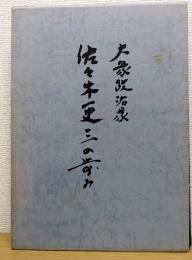 大衆政治家
佐々木更三の歩み